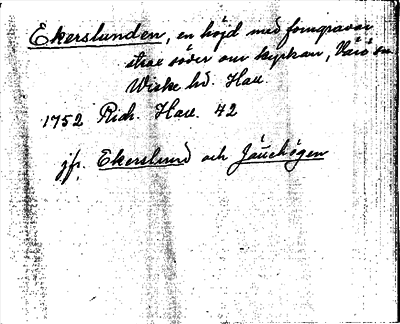 Ekerslunden, en höjd med forngravar
strax söder om kyrkan, Värö sn
Wiske hd. Hall.
1752 Rich. Hall. 42
jfr. Ekerslund och Jäuehögen